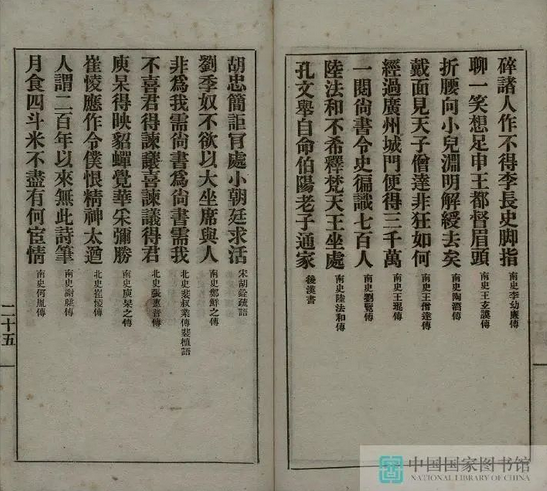 碎諸人作不得李長史脚指 南史李幼廉傳
聊一笑想足申王都督眉頭 南史王玄謨傳
折腰向小兒淵明解綬去矣 南史陶潛傳
戴面見天子僧達非狂如何 南史王僧達傳
經過廣州城門便得三千萬 南史王琨傳
一閱尚書令史徧識七百人 南史劉覽傳
陸法和不希釋梵天王坐處 南史陸法和傳
孔文舉自命伯陽老子通家 後漢書
胡忠簡詎肯處小朝廷求活 宋胡銓疏語
劉季奴不欲以大坐席與人 南史鄭鮮之傳
非爲我需尚書爲尚書需我 北史裴叔業傳裴植語
不喜君得諫議喜諫議得君 北史張
庾杲得映貂蟬覺華采彌勝 南史庾杲之傳
崔㥄應作令僕恨精神太遒 北史崔㥄傳
人謂二百年以來無此詩筆 南史謝朓傳
月食四斗米不盡有何宦情 南史何胤傳
二十五
中国国家图书馆
NATIONAL LIBRARY OF CHINA